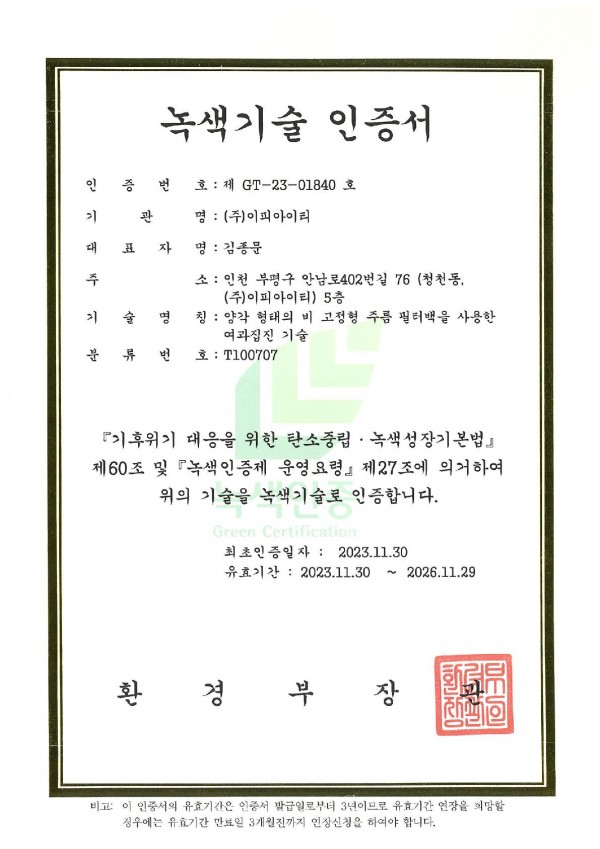 녹색기술 인증서
인 증 번 호 : 제 GT-23-01840 호
기 관 명 : (주)이피아이티
대 표 자 명 : 김종문
주 소 : 인천 부평구 안남로402번길 76 (청천동,
(주)이피아이티) 5층
기 술 명 칭 : 양각 형태의 비 고정형 주름 필터백을 사용한
여과집진 기술
분 류 번 호 : T100707
『기후위기 대응을 위한 탄소중립 · 녹색성장기본법』
제60조 및 『녹색인증제 운영요령』 제27조에 의거하여
위의 기술을 녹색기술로 인증합니다.
녹색인증
Green Certification
최초인증일자 : 2023.11.30
유효기간 : 2023.11.30 ~ 2026.11.29
환 경 부 장 관
비고: 이 인증서의 유효기간은 인증서 발급일로부터 3년이므로 유효기간 연장을 희망할
경우에는 유효기간 만료일 3개월전까지 연장신청을 하여야 합니다.